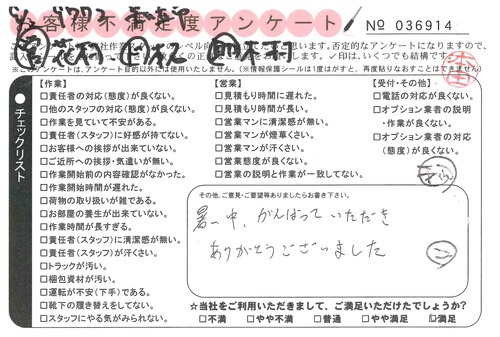 お客様不満足度アンケート
No 036914
チェックリスト
【作業】
□責任者の対応(態度)が良くない。
□他のスタッフの対応(態度)が良くない。
□作業を見ていて不安がある。
□責任者(スタッフ)に好感が持てない。
□お客様への挨拶が出来ていない。
□ご近所への挨拶・気遣いが無い。
□作業開始前の内容確認がなかった。
□作業開始時間が遅れた。
□荷物の取り扱いが雑である。
□お部屋の養生が出来ていない。
□作業時間が長すぎる。
□責任者(スタッフ)に清潔感が無い。
□責任者(スタッフ)が汗くさい。
□トラックが汚い。
□梱包資材が汚い。
□運転が不安(下手)である。
□靴下の履き替えをしてない。
□スタッフにやる気がみられない。
【営業】
□見積もり時間に遅れた。
□見積もり時間が長い。
□営業マンに清潔感が無い。
□営業マンが煙草くさい。
□営業マンが汗くさい。
□営業態度が良くない。
□営業の説明と作業が一致してない。
【受付・その他】
□電話の対応が良くない。
□オプション業者の説明
・作業が良くない。
□オプション業者の対応
(態度)が良くない。
その他、ご意見・ご要望等ありましたらお書き下さい。
暑い中、がんばっていただき
ありがとうございました
☆当社をご利用いただきまして、ご満足いただけたでしょうか?
□不満 □やや不満 □普通 □やや満足 ☑満足